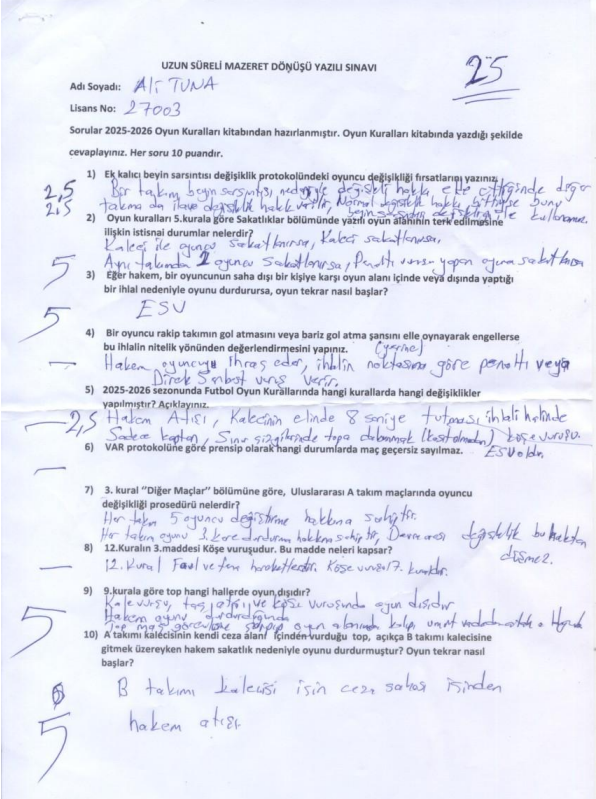 UZUN SÜRELİ MAZERET DÖNÜŞÜ YAZILI SINAVI
25
Adı Soyadı: Ali TUNA
Lisans No: 27003
Sorular 2025-2026 Oyun Kuralları kitabından hazırlanmıştır. Oyun Kuralları kitabında yazdığı şekilde
cevaplayınız. Her soru 10 puandır.
1) Ek kalıcı beyin sarsıntısı değişiklik protokolündeki oyuncu değişikliği fırsatlarını yazınız.
2,5
Bir takım beyin sarsıntısı nedeniyle değişiklik hakkı elde ettiğinde diğer
2,5
takıma da ilave değişiklik hakkı verilir, Normal değişiklik hakkı bittiyse bunu
beyin sarsıntısı değişikliği ile kullanamaz.
2) Oyun kuralları 5.kurala göre Sakatlıklar bölümünde yazılı oyun alanının terk edilmesine
ilişkin istisnai durumlar nelerdir?
Kaleci ile oyuncu sakatlanırsa, Kaleci sakatlanırsa,
Aynı takımdan 2 oyuncu sakatlanırsa, Penaltı vuruşu yapan oyuncu sakatlanırsa
5
3) Eğer hakem, bir oyuncunun saha dışı bir kişiye karşı oyun alanı içinde veya dışında yaptığı
bir ihlal nedeniyle oyunu durdurursa, oyun tekrar nasıl başlar?
5
ESV
4) Bir oyuncu rakip takımın gol atmasını veya bariz gol atma şansını elle oynayarak engellerse
bu ihlalin nitelik yönünden değerlendirmesini yapınız.
(yerine)
Hakem oyuncuyu ihraç eder, ihlalin noktasına göre penaltı veya
Direk Serbest vuruş verir.
5) 2025-2026 sezonunda Futbol Oyun Kurallarında hangi kurallarda hangi değişiklikler
yapılmıştır? Açıklayınız.
2,5
Hakem Atışı, Kalecinin elinde 8 saniye tutması ihlali halinde
köşe vuruşu.
Sadece kaptan, Sınır çizgilerinde topa dokunmak (kasıt olmadan)
ESV oldu.
6) VAR protokolüne göre prensip olarak hangi durumlarda maç geçersiz sayılmaz.
7) 3. kural ‘’Diğer Maçlar’’ bölümüne göre, Uluslararası A takım maçlarında oyuncu
değişikliği prosedürü nelerdir?
Her takım 5 oyuncu değiştirme hakkına sahiptir.
Her takım oyunu 3 kere durdurma hakkına sahiptir. Devre arası değişiklik bu haktan
düşmez.
8) 12.Kuralın 3.maddesi Köşe vuruşudur. Bu madde neleri kapsar?
12. Kural Faul ve fena hareketlerdir. Köşe vuruşu 17. kuraldır.
9) 9.kurala göre top hangi hallerde oyun dışıdır?
5
Kale vuruşu, taç atışı ve köşe vuruşunda oyun dışıdır.
Hakem oyunu durdurduğunda
10) A takımı kalecisinin kendi ceza alanı içinden vurduğu top, açıkça B takımı kalecisine
gitmek üzereyken hakem sakatlık nedeniyle oyunu durdurmuştur? Oyun tekrar nasıl
başlar?
B takımı kalecisi için ceza sahası içinden
5
hakem atışı